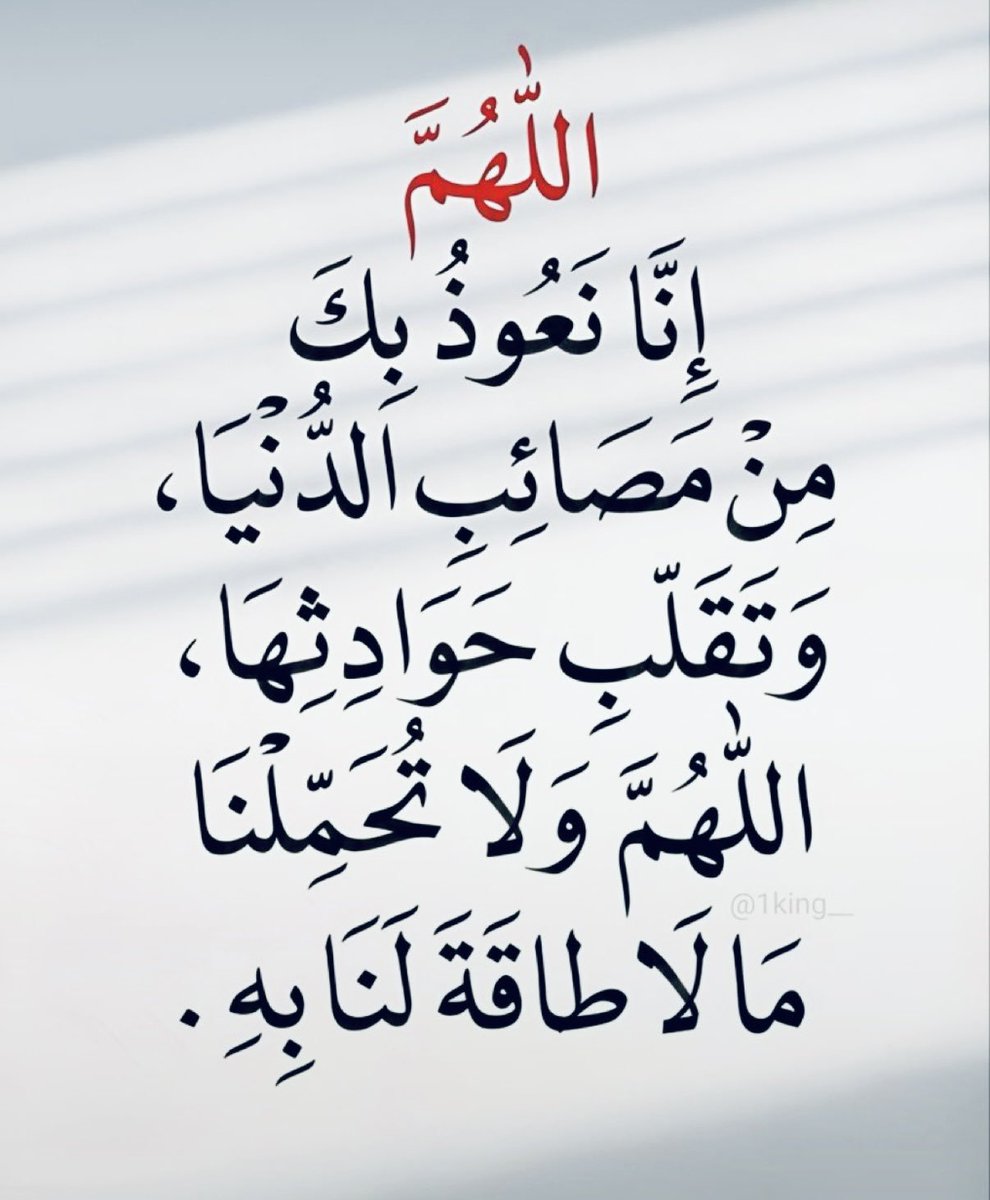 اللّٰهُمَّ
إِنَّا نَعُوذُ بِكَ
مِنْ مَصَائِبِ الدُّنْيَا،
وَتَقَلّبِ حَوَادِثِهَا،
اللّٰهُمَّ وَلَا تُحَمِّلْنَا
@1king__
مَا لَا طاقَةَ لَنَا بِهِ .